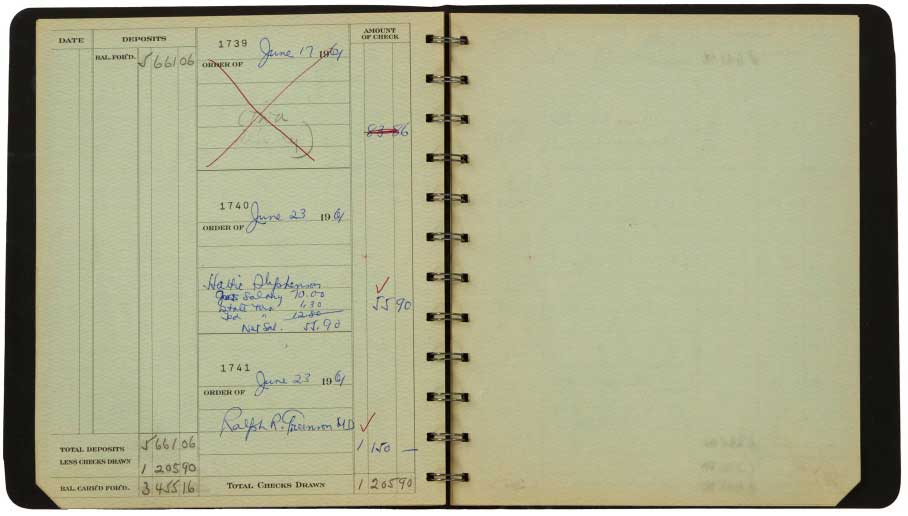 DATE DEPOSITS AMOUNT OF CHECK
BAL. FOR'D. 4 661 06
1739 June 17 1961
ORDER OF
83 56
1740 June 23 1961
ORDER OF
Hattie Stephenson
Gross Salary 70.00
State Tax 1.30
Fed " 12.80
Net Sal. 55.90
55 90
1741 June 23 1961
ORDER OF
Ralph R. Greenson MD
1 150 —
TOTAL DEPOSITS 4 661 06
LESS CHECKS DRAWN 1 205 90
BAL. CARI'D FOR'D. 3 455 16
TOTAL CHECKS DRAWN 1 205 90